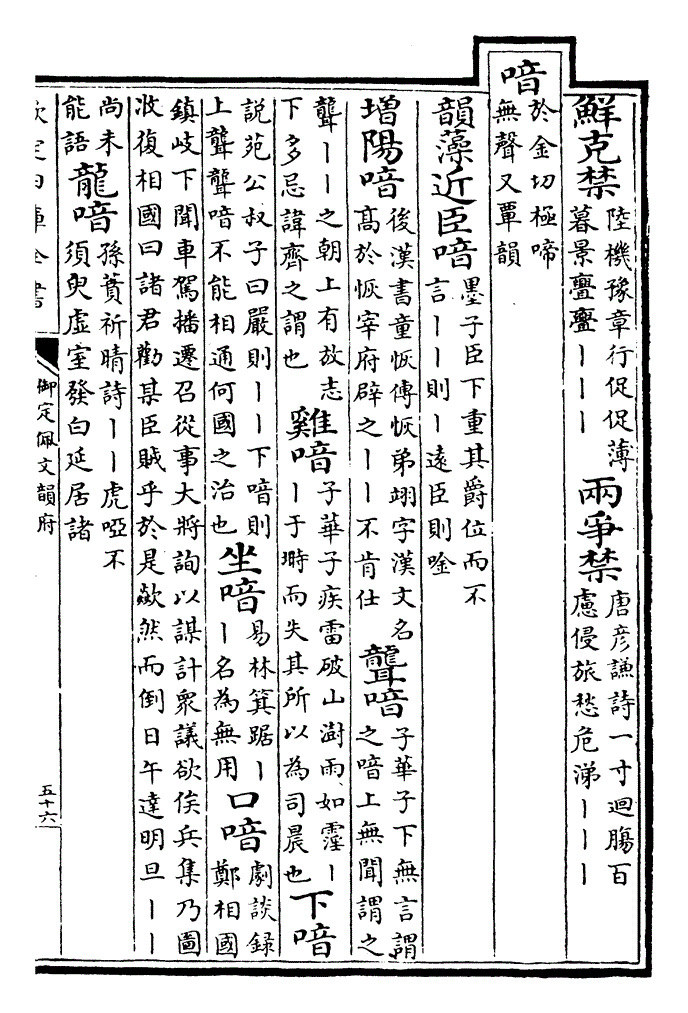 鮮克禁陸機豫章行促促薄暮景亹亹丨丨丨 兩爭禁唐彦謙詩一寸迴腸百慮侵旅愁危涕丨丨丨
喑於金切極啼無聲又覃韻
韻藻近臣喑墨子臣下重其爵位而不言丨丨則丨遠臣則唫
增陽喑後漢書童恢傳恢弟翊字漢文名髙於恢宰府辟之丨丨不肯仕 聾喑子華子下無言謂之喑上無聞謂之
聾丨丨之朝上有放志下多忌諱齊之謂也 雞喑子華子疾雷破山澍雨如霪丨丨于塒而失其所以為司晨也 下喑
說苑公叔子曰嚴則丨丨下喑則上聾聾喑不能相通何國之治也 坐喑易林箕踞丨丨名為無用 口喑劇談録鄭相國
鎮岐下聞車駕播遷召從事大將詢以謀計衆議欲俟兵集乃圖收復相國曰諸君勸某臣賊乎於是歘然而倒日午達明旦丨丨
尚未能語 龍喑孫蕡祈晴詩丨丨虎啞不須臾虚室發白延居諸
欽定四庫全書
御定佩文韻府
五十六